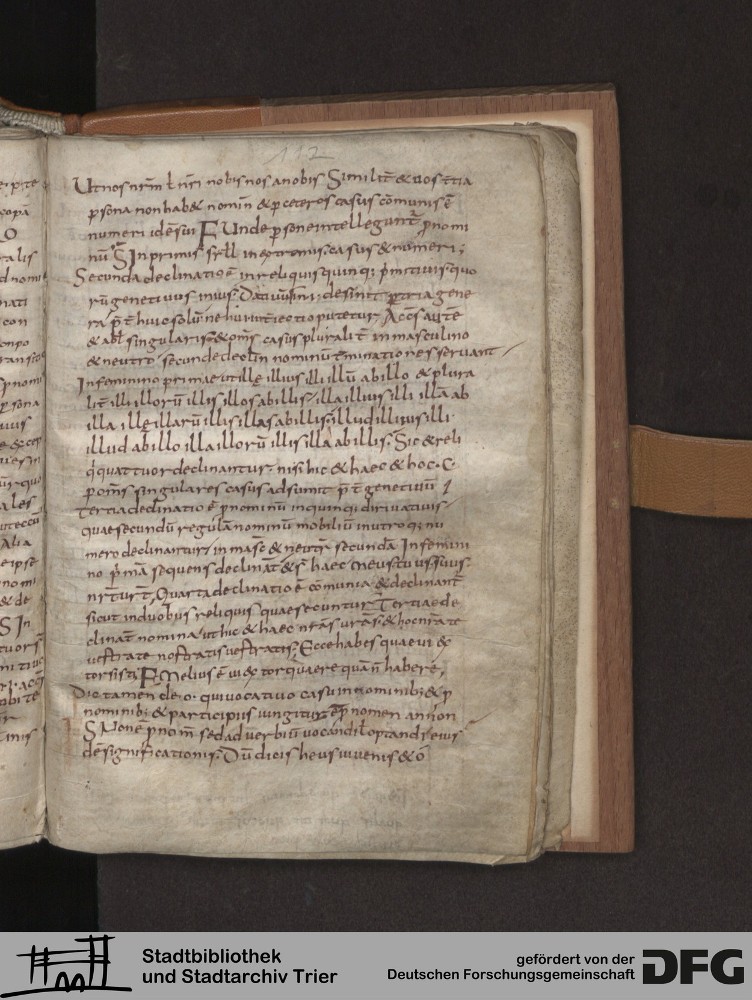 112
Ut nos nr̄m ł nr̄i nobis nos a nobis Similit̄ & uos t̄tia
p̱sona non hab& nomin̄ & p̱ ceteros casus cōmunis ē
numeri idē sui F Unde p̱sone intelleguntr̄ p̱nomi
nū S In primis syll̄ in extremis casus & numeri;
Secunda declinatio ē in reliquis quinq; p̄mitiuis quo
rū genetiuus in ius. Datiuus in i; desinit p̱ tria gene
ra p̄t̄ huic solū ne hui int̄iectio putetur Acc̄s aut̄e
& abl̄ singularis & om̄s casus pluralit̄ in masculino
& neutro secunde decl̄on nominū t̄minationes seruant
In feminino primae ut ille illius illi illū ab illo & plura
lit̄ illi illorū illis illos ab illis illa illius illi illā ab
illa illę illarū illis illas ab illis; illud illius illi
illud ab illo illa illorū illis illa ab illis; Sic & reli
q̄ quattuor declinantur; nisi hic & haec & hoc. C.
p̱ om̄s singulares casus adsumit p̄t̄ genetiuū
Tertia declinatio ē p̱nominū in quinq; diriuatiuis
quae secundū regulā nominū mobiliū in utroq; nu
mero declinantur in masc̄ & neutr̄ secundā In femini
no p̄mā sequens declinat̄ & s̄ haec meus tuus suus
nr̄ ur̄ Quarta declinatio ē cōmunia & declinant̄
sicut in duobus reliquis quae secuntur Tertiae de
clinat̄ nomina ut hic & haec nr̄as ur̄as & hoc nr̄ate
uestrate nostratis uestratis; Ecce habes quae ui &
torsisti F Melius ē ui extorquere quā n̄ habere;
Dic tamen de .o. qui uocatiuo casu in nominib; & p̱
nominib; & participiis iungitur ē p̱nomen an non
S Non ē p̱nom̄ sed aduerbiū uocandi ł optandi eius
dē significationis; Dū dicis heus iuuenis & ó
Stadtbibliothek
und Stadtarchiv Trier
gefördert von der
Deutschen Forschungsgemeinschaft
DFG